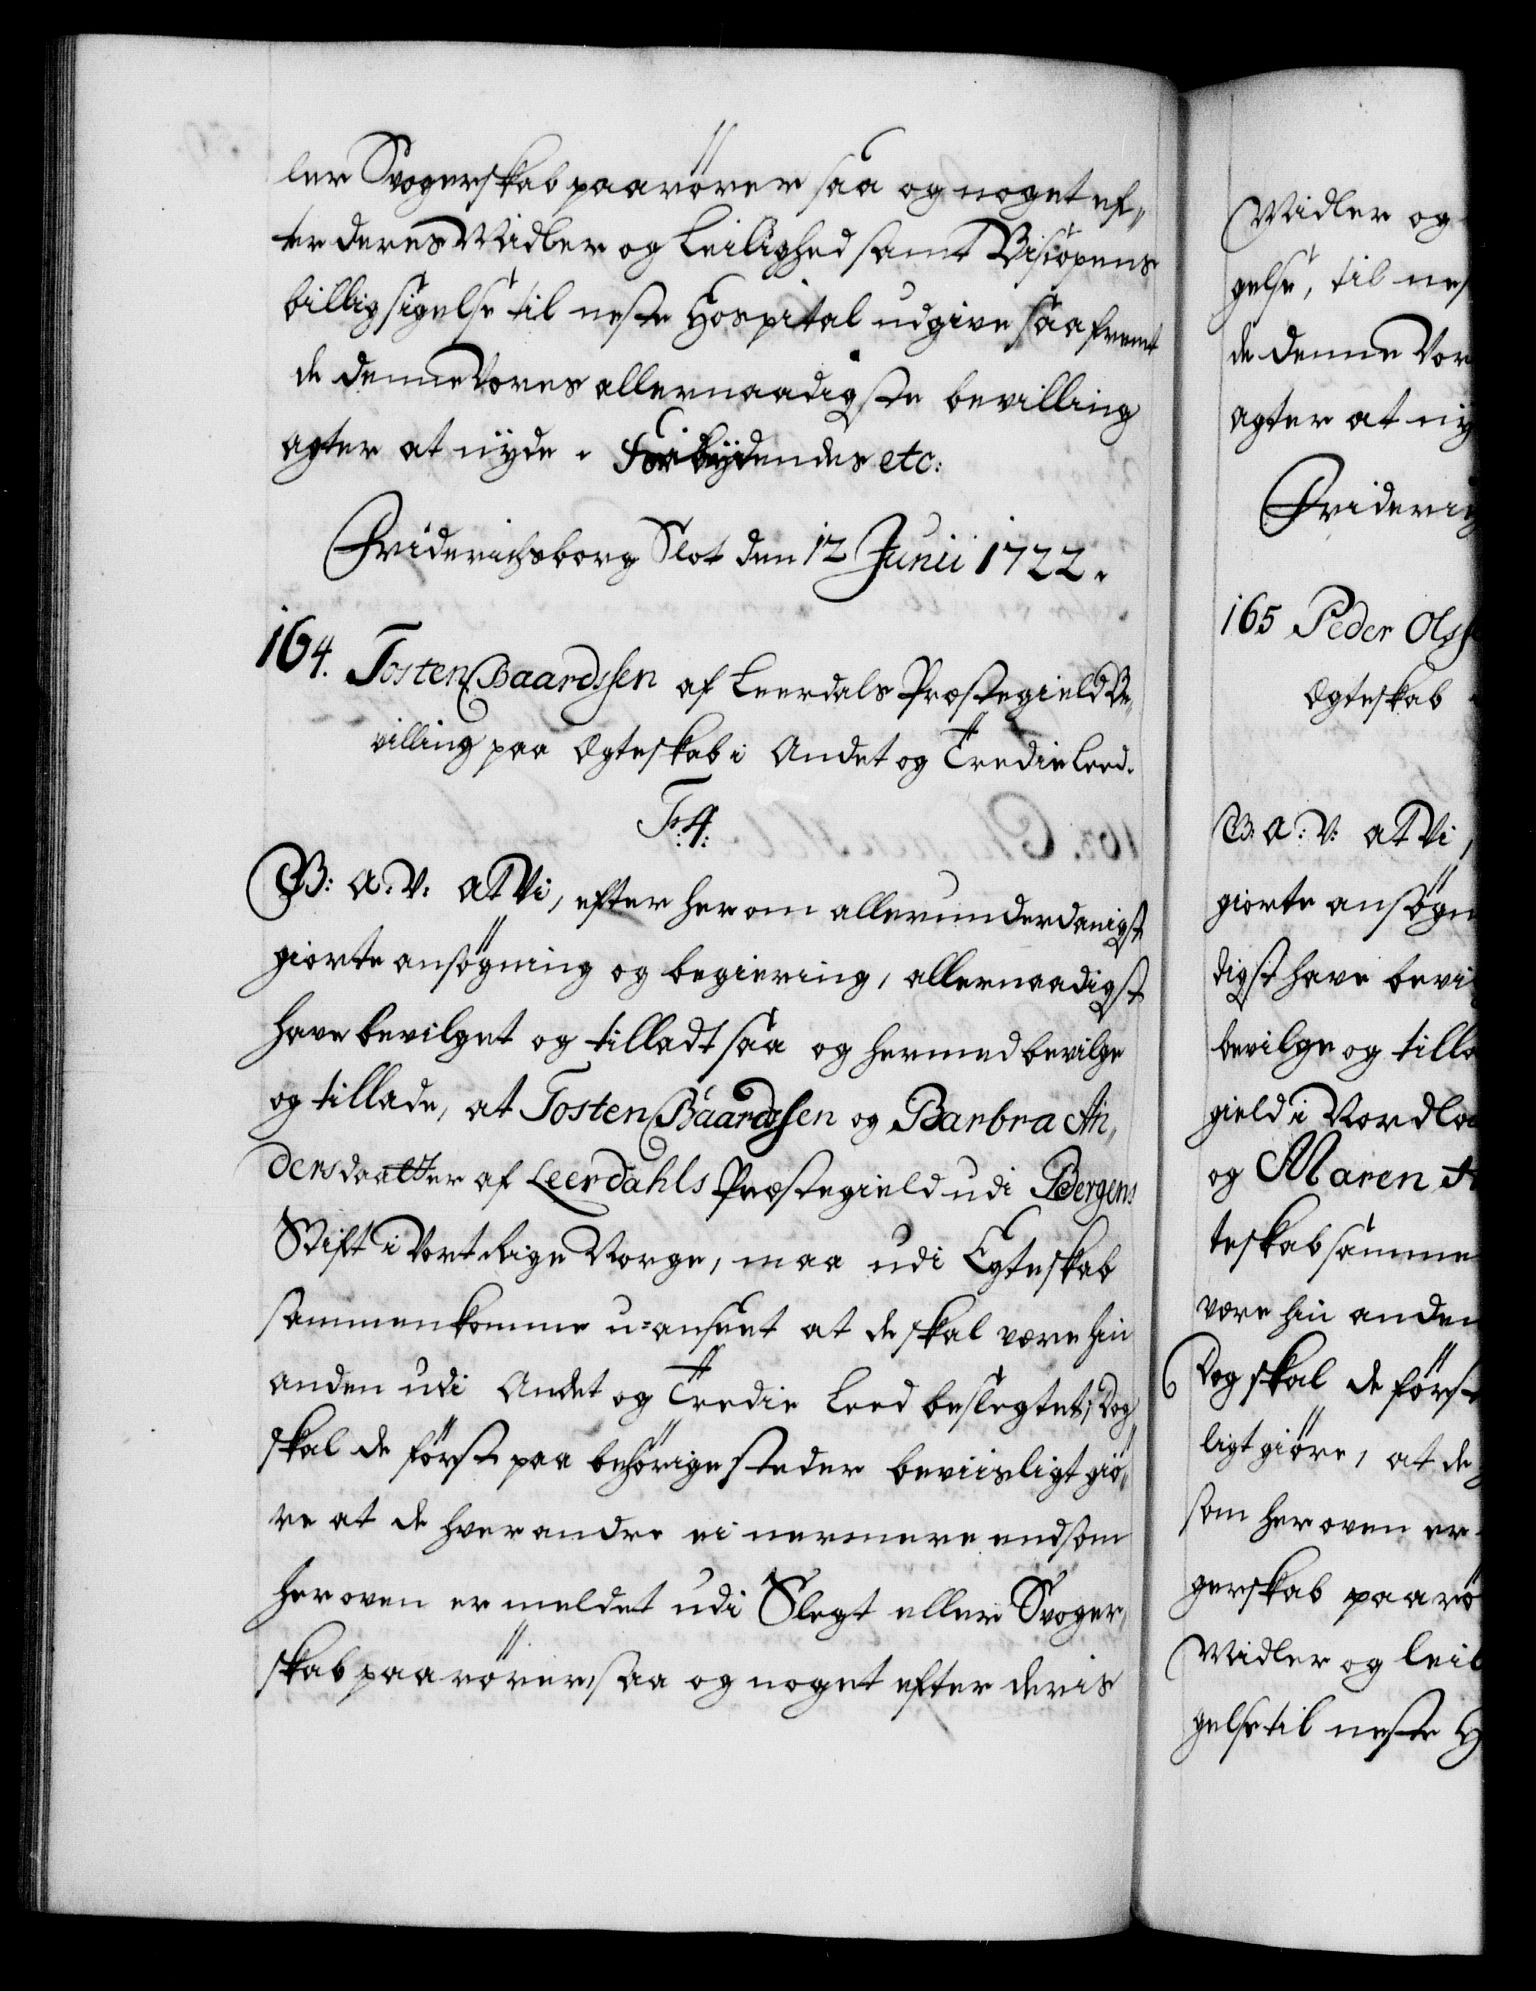 ler Svogerskab paarörer saa og noget ef,,
ter deres Midler og Leilighed samt Biscopens
billigsigelse til neste Hospital udgive saafremt
de denne Vores allernaadigste bevilling
agter at nÿde. Forbÿdendes etc:
Friderichsborg Slot den 12 Junii 1722.
164. Tosten Baardssen af Leerdals Præstegield Be,,
villing paa Ægteskab i Andet og Tredie Leed.
B: A: V: AT Vi, efter herom allerunderdanigst
giorte ansögning og begiering, allernaadigst
have bevilget og tilladt saa og hermed bevilge
og tillade, at Tosten Baardssen og Barbra An,,
dersdaatter af Leerdahls Præstegield udi Bergens
Stift i Vort Rige Norge, maa udi Egteskab
sammenkomme u=anseet at de skal være hin
anden udi Andet og Tredie Leed beslegtet; Dog
skal de först paa behörige steder beviisligt giö,,
re at de hverandre ei nermere end som
her oven er meldet udi Slegt eller Svoger,,
skab paarörer, saa og noget efter deris
Midler og
gelse, til nes
de denne Vor
agter at nÿ
Friderig
165 Peder Olss
Ægteskab
B: A: V: AT Vi,
giorte ansögn
digst have bevi
bevilge og tilla
gield i Nordla
og Maren A
teskab samme
være hin anden
Dog skal de först
ligt giöre, at de
som her oven er
gerskab paarö
Midler og Leil
gelse til neste H